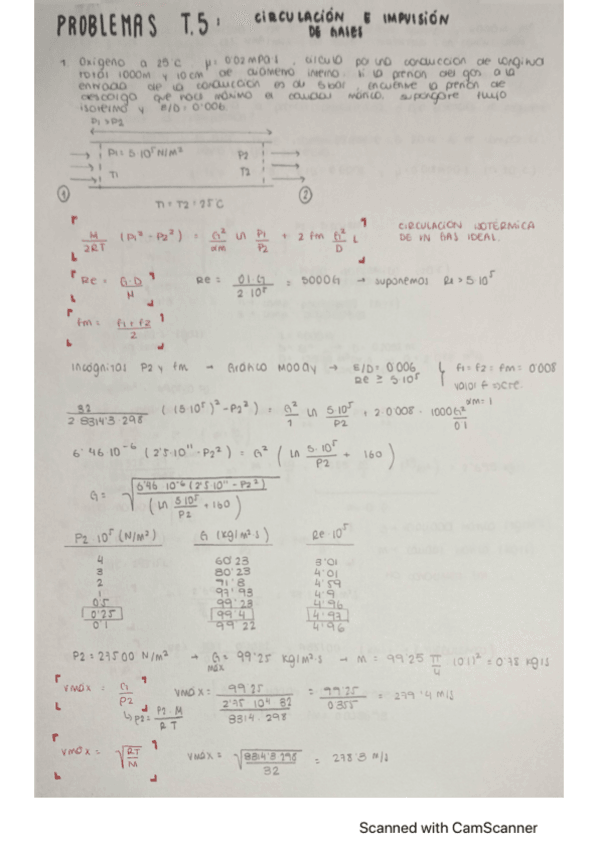 PROBLEMAS T.5: CIRCULACIÓN E IMPULSIÓN
DE GASES
1. Oxígeno a 25°C, μ= 0'02 mPa s, circula por una conduccion de longitud
total 1000m y 10cm de diámetro interno. Si la presion del gas a la
entrada de la conduccion es de 5 bar, encuentre la presion de
descarga que hace máximo el caudal másico. Supongase flujo
isotermo y E/D= 0'006.
P1 > P2
P1 = 5·10⁵ N/m² P2
T1 T2
① ②
T1 = T2 = 25°C
M/2RT (P1² - P2²) = G²/αm ln P1/P2 + 2 fm G²/D L
CIRCULACION ISOTERMICA
DE UN GAS IDEAL.
Re = G·D/μ Re = 0'1 G/2·10⁻⁵ = 5000G → suponemos Re > 5·10⁵
fm = f1+f2/2
Incógnitas P2 y fm → Gráfico MOODY → E/D = 0'006
Re ≥ 5·10⁵
f1 = f2 = fm = 0'008
αm = 1
32/2·8314'3·298 ((5·10⁵)² - P2²) = G²/1 ln 5·10⁵/P2 + 2·0'008·1000G²/0'1
6'46·10⁻⁶ (2'5·10¹¹ - P2²) = G² (ln 5·10⁵/P2 + 160)
G = √(6'46·10⁻⁶(2'5·10¹¹ - P2²)/(ln 5·10⁵/P2 + 160))
P2·10⁵ (N/m²) G (kg/m²·s) Re·10⁵
4 60'23 3'01
3 80'23 4'01
2 91'8 4'59
1 97'93 4'9
0'5 99'23 4'96
0'25 99'4 4'97
0'1 99'22 4'96
P2 = 27500 N/m² → G max = 99'25 kg/m²·s → m = 99'25 π/4 (0'1)² = 0'78 kg/s
Vmáx = G/ρ2
Vmáx = 99'25/(2'75·10⁴·32/8314·298) = 99'25/0'355 = 279'4 m/s
↳ ρ2 = P2·M/RT
Vmáx = √RT/M Vmáx = √(8314'3·298/32) = 278'3 m/s
Scanned with CamScanner